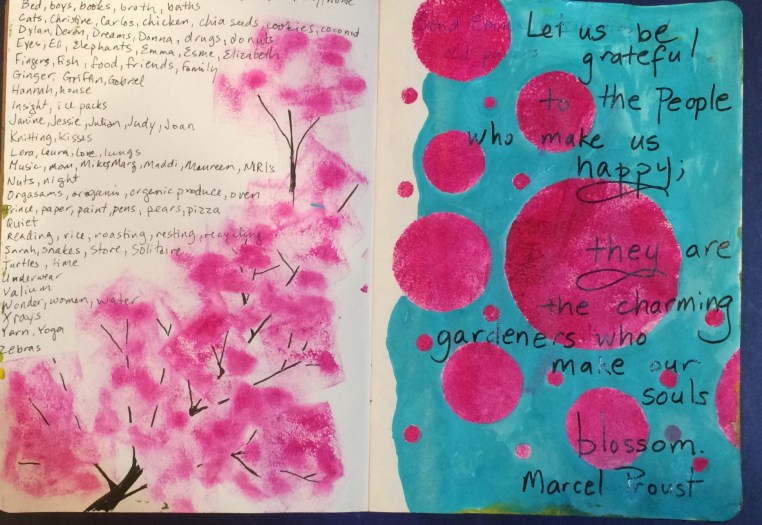 Bed, boys, books, broth, baths
Cats, Christine, Carlos, chicken, chia seeds, cookies, coconut
Dylan, Deran, Dreams, Donna, drugs, donuts
Eyes, Eli, Elephants, Emma, Esme, Elizabeth
Fingers, Fish, food, friends, Family
Ginger, Griffin, Gabriel
Hannah, house
Insight, ice packs
Janine, Jessie, Julian, Judy, Joan
Knitting, Kisses
Lora, Laura, love, lungs
Music, mom, Mike, Marg, Maddi, Maureen, MRI's
Nuts, night
Orgasams, oregano, organic produce, oven
Prince, paper, paint, pens, pears, pizza
Quiet
Reading, rice, roasting, resting, recycling
Sarah, snakes, Store, Solitaire
Turtles, time
Underwear
Valium
Wonder, women, water
Xrays
Yarn, Yoga
Zebras
Let us be
grateful
to the People
who make us
happy;
they are
the charming
gardeners who
make our
souls
blossom.
Marcel Proust